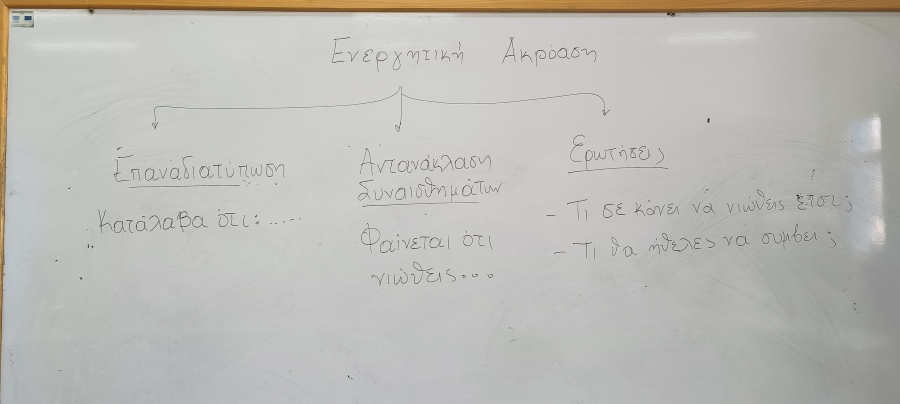 Ενεργητική Ακρόαση
Επαναδιατύπωση
Κατάλαβα ότι:.....
Αντανάκλαση
Συναισθημάτων
Φαίνεται ότι
νιώθεις...
Ερωτήσεις
- Τι σε κάνει να νιώθεις έτσι;
- Τι θα ήθελες να συμβεί;